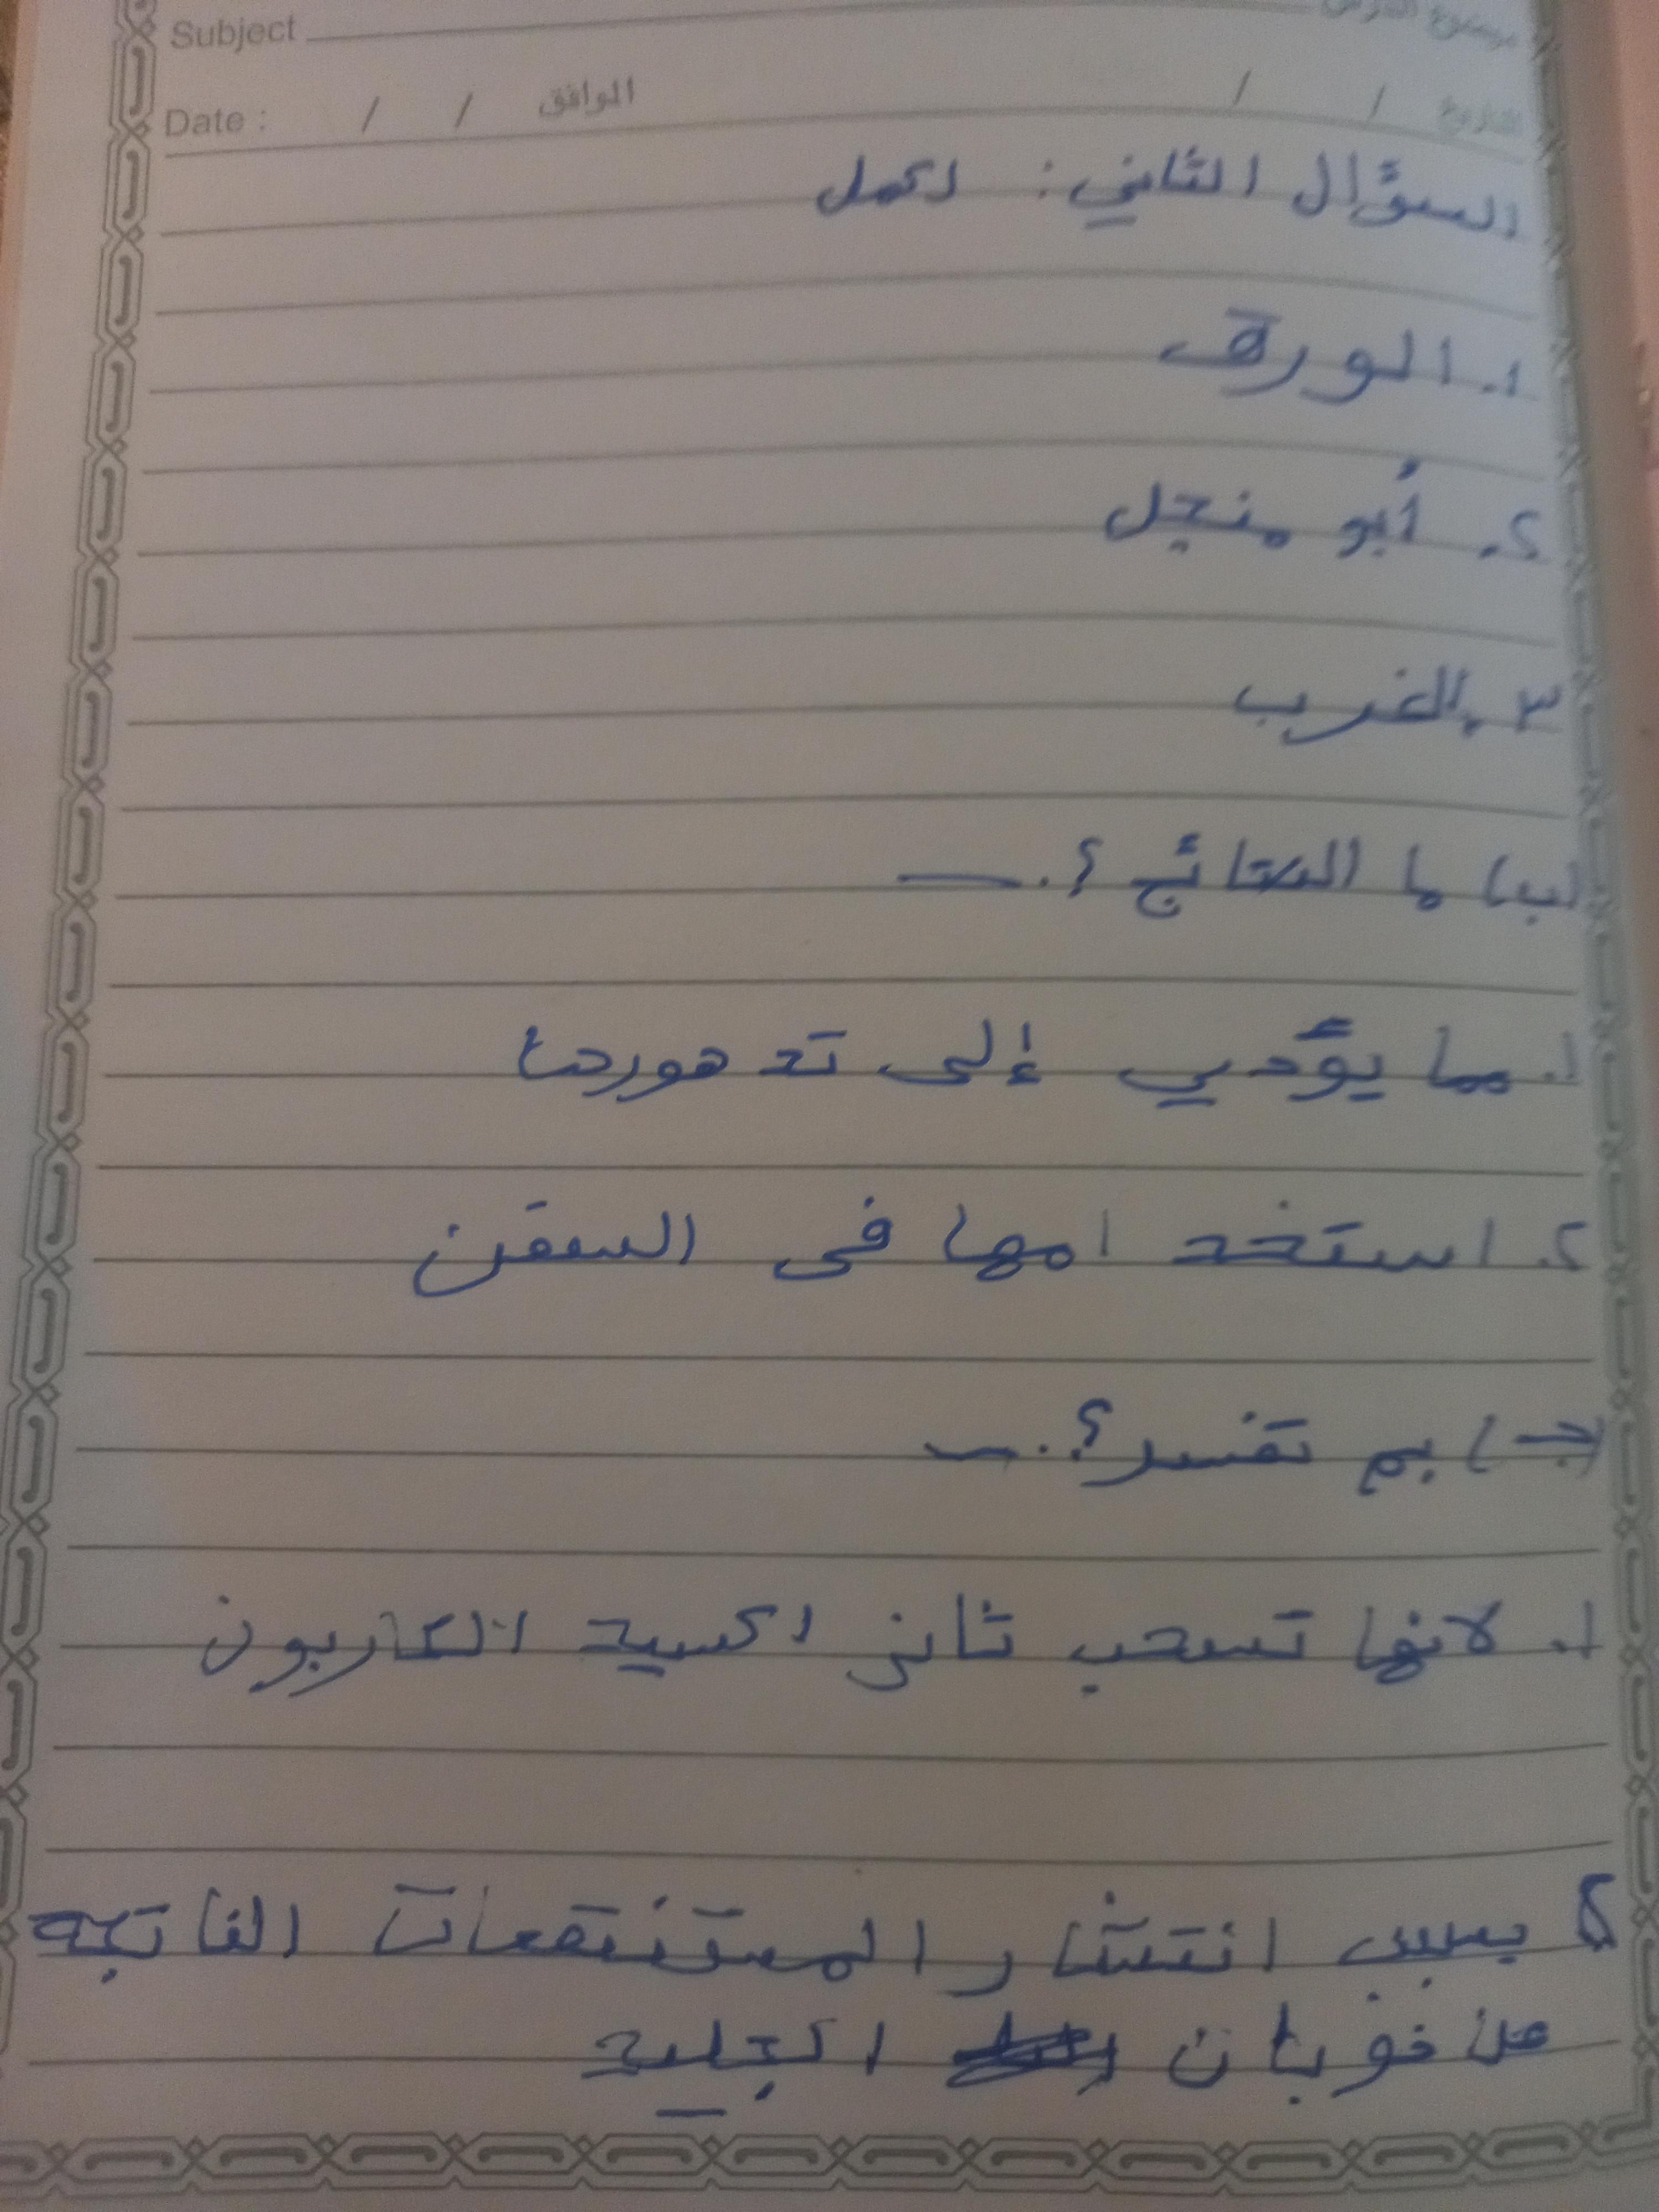 Subject
Date : / / الموافق / / التاريخ
السؤال الثاني: اكمل
١. الورق
٢. أبو منجل
٣. الغرب
ب) ما النتائج؟.
١. مما يؤدي إلى تدهورها
٢. استخدامها فى السفن
ج) بم تفسر؟.
١. لانها تسحب ثانى اكسيد الكاربون
٢ بسبب انتشار المستنقعات الناتجه
عن ذوبان الجليد